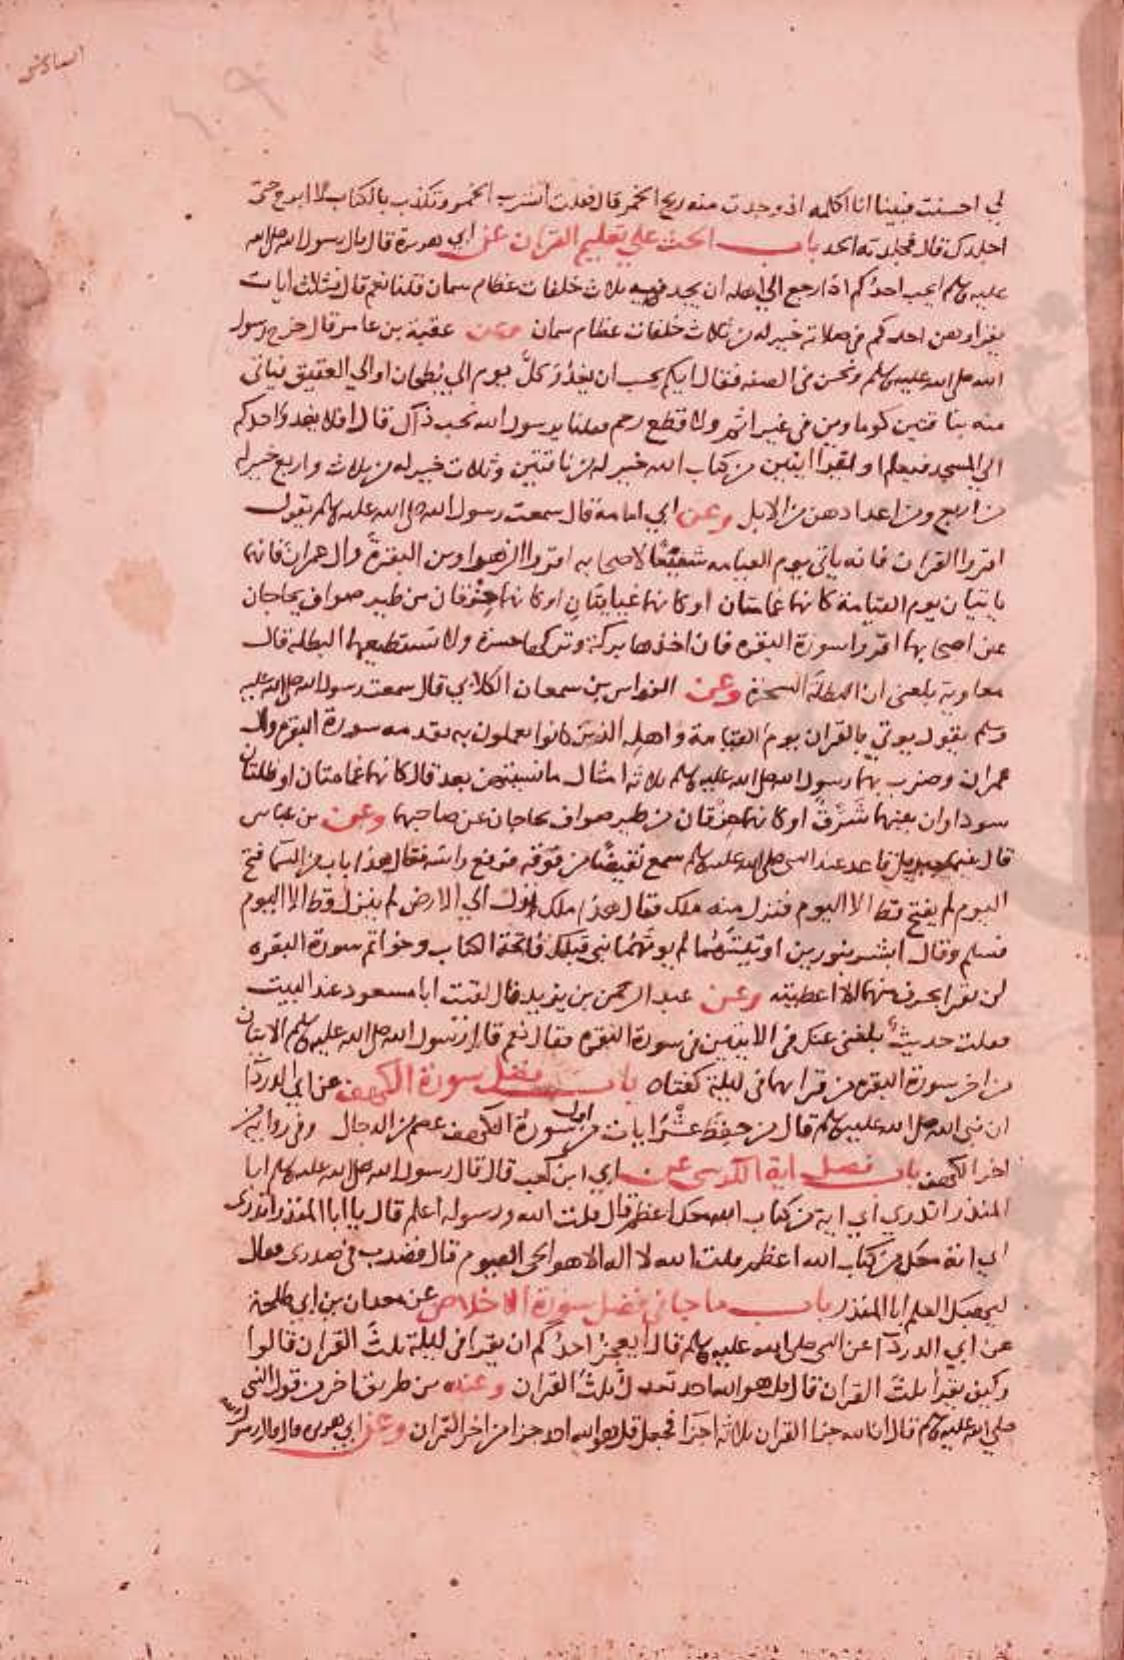 السادس
لي احسنت فبينا انا اكلمه اذ وجدت منه ريح الخمر قال فقلت اتشرب الخمر وتكذب بالكتاب لا ابرح حتى
اجلدك قال فجلدته الحد باب الحث على تعليم القران عن ابي هريرة قال قال رسول الله صلى الله
عليه وسلم ايحب احدكم اذا رجع الي اهله ان يجد فيه ثلاث خلفات عظام سمان قلنا نعم قال فثلاث ايات
يقراوهن احدكم في صلاته خير له من ثلاث خلفات عظام سمان وعن عقبة بن عامر قال خرج رسول
الله صلى الله عليه وسلم ونحن في الصفه فقال ايكم يحب ان يغدُوَ كلَّ يوم الي بُطحان او الي العقيق فياتي
منه بناقتين كوماوين في غير اثم ولا قطع رحم فقلنا يرسول الله نحب ذلك قال افلا يغدوا احدكم
الي المسجد فيعلم او يقرا ايتين من كتاب الله خير له من ناقتين وثلاث خير له من ثلاث واربع خير له
من اربع ومن اعدادهن من الابل وعن ابي امامة قال سمعت رسول الله صلى الله عليه وسلم يقول
اقروا القران فانه ياتي يوم القيامه شفيعًا لاصحابه اقروا الزهراوين البقرةَ وال عمران فانهما
ياتيان يوم القيامة كانهما غمامتان او كانهما غيايتان او كانهما حِزْقان من طير صواف يحاجان
عن اصحابهما اقروا سورة البقره فان اخذها بركة وتركها حسرة ولا تستطيعها البطله قال
معاوية بلغني ان البطلَة السحرة وعن النواس بن سمعان الكلابي قال سمعت رسول الله صلى الله عليه
وسلم يقول يوتي بالقران يوم القيامة واهلِه الذين كانوا يعملون به تقدمه سورة البقره وال
عمران وضرب لهما رسول الله صلى الله عليه وسلم ثلاثه امثال ما نسيتهن بعد قال كانهما غمامتان او ظلتان
سوداوان بينهما شَرْقٌ او كانهما حزقان من طير صواف يحاجان عن صاحبهما وعن بن عباس
قال بينما جبريل قاعد عند النبي صلى الله عليه وسلم سمع نقيضًا من فوقه فرفع راسه فقال هذا باب من السما فتح
اليوم لم يفتح قط الا اليوم فنزل منه ملك فقال هذا ملك نزل الي الارض لم ينزل قط الا اليوم
فسلم وقال ابشر بنورين اوتيتَهُما لم يوتَهُما نبي قبلك فاتحة الكتاب وخواتم سورة البقره
لن تقرا بحرف منهما الا اعطيته وعن عبد الرحمن بن يزيد قال لقيت ابا مسعود عند البيت
فقلت حديثٌ بلغني عنك في الايتين في سورة البقره فقال نعم قال رسول الله صلى الله عليه وسلم الايتان
من اخر سورة البقره من قراهما في ليلة كفتاه باب فضل سورة الكهف عن ابي الدردآ
ان نبي الله صلى الله عليه وسلم قال من حفِظ عشْرَ ايات من اول سورة الكهف عصم من الدجال وفي رواية من
اخر الكهف باب فضل اية الكرسي عن ابي ابن كعب قال قال رسول الله صلى الله عليه وسلم ابا
المنذر اتدري اي اية من كتاب الله معك اعظم قال قلت الله ورسوله اعلم قال يا ابا المنذر اتدري
اي اية معك من كتاب الله اعظم قلت الله لا اله الا هو الحي القيوم قال فضرب في صدري وقال
ليهنك العلم ابا المنذر باب ما جا في فضل سورة الاخلاص عن معدان بن ابي طلحة
عن ابي الدردآ عن النبي صلى الله عليه وسلم قال ايعجز احدُكم ان يقرا في ليلة ثلثَ القران قالوا
وكيف يقرأ ثلثَ القران قال قل هو الله احد تعدل ثُلثَ القران وعنه من طريق اخر من قول النبي
صلى الله عليه وسلم قال ان الله جزا القران ثلاثه اجزآ فجعل قل هو الله احد جزا من اجزا القران وعن ابي هريره قال قال رسول الله